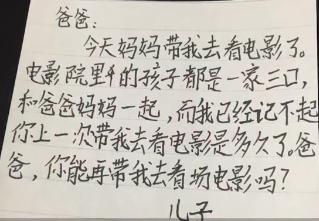 爸爸:
今天妈妈带我去看电影了。
电影院里的孩子都是一家三口,
和爸爸妈妈一起,而我已经记不起
你上一次带我去看电影是多久了。爸
爸,你能再带我去看场电影吗?
儿子